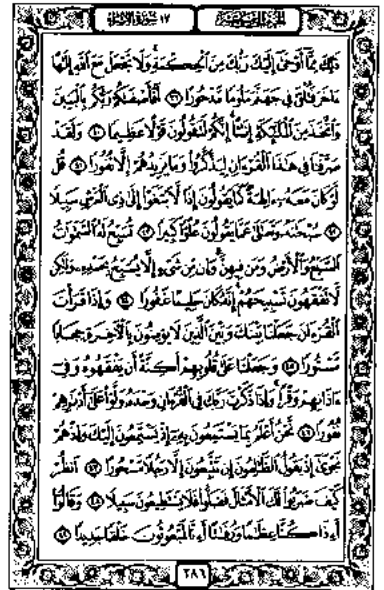 الجزء الخامس عشر
١٧ سورة الإسراء
ذَٰلِكَ مِمَّا أَوْحَىٰ إِلَيْكَ رَبُّكَ مِنَ الْحِكْمَةِ وَلَا تَجْعَلْ مَعَ اللَّهِ إِلَٰهًا
ءَاخَرَ فَتُلْقَىٰ فِي جَهَنَّمَ مَلُومًا مَّدْحُورًا ٣٩ أَفَأَصْفَىٰكُمْ رَبُّكُم بِالْبَنِينَ
وَاتَّخَذَ مِنَ الْمَلَٰئِكَةِ إِنَٰثًا إِنَّكُمْ لَتَقُولُونَ قَوْلًا عَظِيمًا ٤٠ وَلَقَدْ
صَرَّفْنَا فِي هَٰذَا الْقُرْءَانِ لِيَذَّكَّرُوا وَمَا يَزِيدُهُمْ إِلَّا نُفُورًا ٤١ قُل
لَّوْ كَانَ مَعَهُ ءَالِهَةٌ كَمَا يَقُولُونَ إِذًا لَّابْتَغَوْا إِلَىٰ ذِي الْعَرْشِ سَبِيلًا
٤٢ سُبْحَٰنَهُ وَتَعَٰلَىٰ عَمَّا يَقُولُونَ عُلُوًّا كَبِيرًا ٤٣ تُسَبِّحُ لَهُ السَّمَٰوَٰتُ
السَّبْعُ وَالْأَرْضُ وَمَن فِيهِنَّ وَإِن مِّن شَيْءٍ إِلَّا يُسَبِّحُ بِحَمْدِهِ وَلَٰكِن
لَّا تَفْقَهُونَ تَسْبِيحَهُمْ إِنَّهُ كَانَ حَلِيمًا غَفُورًا ٤٤ وَإِذَا قَرَأْتَ
الْقُرْءَانَ جَعَلْنَا بَيْنَكَ وَبَيْنَ الَّذِينَ لَا يُؤْمِنُونَ بِالْءَاخِرَةِ حِجَابًا
مَّسْتُورًا ٤٥ وَجَعَلْنَا عَلَىٰ قُلُوبِهِمْ أَكِنَّةً أَن يَفْقَهُوهُ وَفِي
ءَاذَانِهِمْ وَقْرًا وَإِذَا ذَكَرْتَ رَبَّكَ فِي الْقُرْءَانِ وَحْدَهُ وَلَّوْا عَلَىٰ أَدْبَٰرِهِمْ
نُفُورًا ٤٦ نَّحْنُ أَعْلَمُ بِمَا يَسْتَمِعُونَ بِهِ إِذْ يَسْتَمِعُونَ إِلَيْكَ وَإِذْ هُمْ
نَجْوَىٰ إِذْ يَقُولُ الظَّٰلِمُونَ إِن تَتَّبِعُونَ إِلَّا رَجُلًا مَّسْحُورًا ٤٧ انظُرْ
كَيْفَ ضَرَبُوا لَكَ الْأَمْثَالَ فَضَلُّوا فَلَا يَسْتَطِيعُونَ سَبِيلًا ٤٨ وَقَالُوا
أَءِذَا كُنَّا عِظَٰمًا وَرُفَٰتًا أَءِنَّا لَمَبْعُوثُونَ خَلْقًا جَدِيدًا ٤٩
٢٨٦